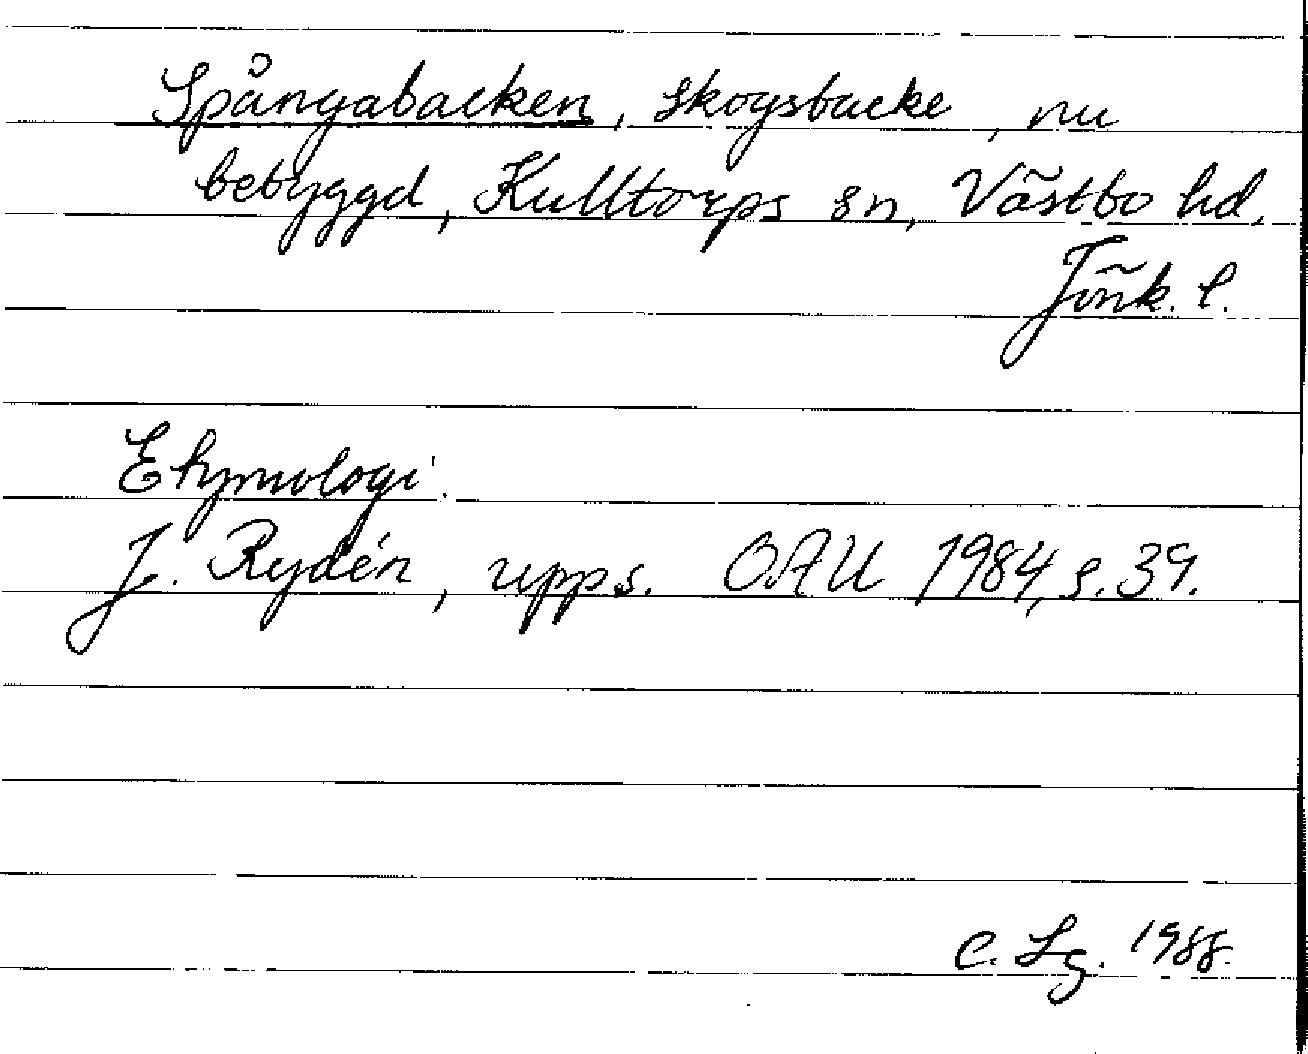 Spångabacken, skogsbacke, nu
bebyggd, Kulltorps sn, Västbo hd,
Jönk. l.
Etymologi.
J. Rydén, upps. OAU 1984, s. 39.
C. Lg. 1988.